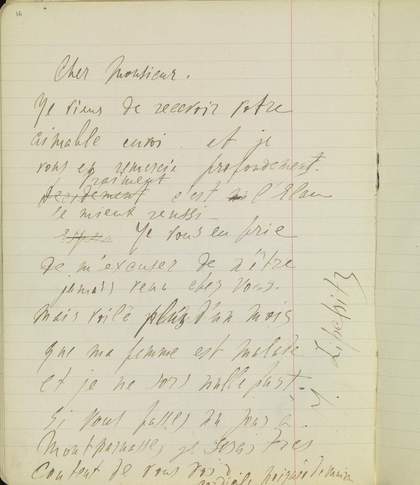 Cher Monsieur.
Je viens de recevoir votre
aimable envoi et je
vous en remercie profondement.
vraiment
Decidement c'est l'Elan
le mieux reussi
Je vous en prie
de m'excuser de n'être
jamais venu chez vous.
Mais voilà plus d'un mois
que ma femme est malade
et je ne sors nulle part.
Si vous passez un jour à
Montparnasse, je serai très
content de vous voir
cordiale poignée de main
J. Lipchitz